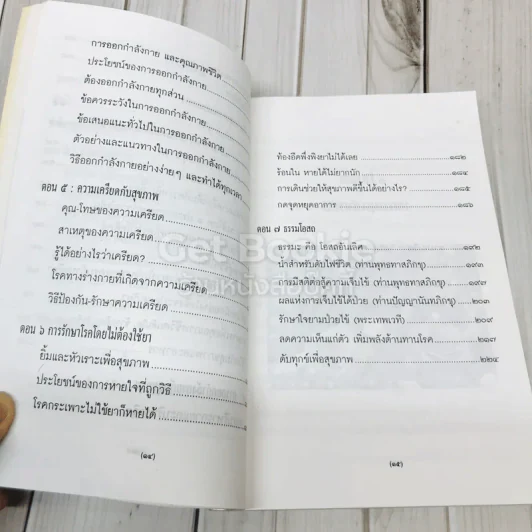 การออกกำลังกาย และคุณภาพชีวิต
ประโยชน์ของการออกกำลังกาย
ต้องออกกำลังกายทุกส่วน
ข้อควรระวังในการออกกำลังกาย
ข้อเสนอแนะทั่วไปในการออกกำลังกาย
ตัวอย่างและแนวทางในการออกกำลังกาย
วิธีออกกำลังกายอย่างง่ายๆ และทำได้ทุกเวลา
ตอน ๕ : ความเครียดกับสุขภาพ
คุณ-โทษของความเครียด
สาเหตุของความเครียด
รู้ได้อย่างไรว่าเครียด?
โรคทางร่างกายที่เกิดจากความเครียด
วิธีป้องกัน-รักษาความเครียด
ตอน ๖ การรักษาโรคโดยไม่ต้องใช้ยา
ยิ้มและหัวเราะเพื่อสุขภาพ
ประโยชน์ของการหายใจที่ถูกวิธี
โรคกระเพาะไม่ใช้ยาก็หายได้
(๑๔)
ท้องอืดพึ่งพิงยาไม่ได้เลย ๑๘๒
ร้อนใน หายได้ไม่ยากนัก ๑๘๔
การเดินช่วยให้สุขภาพดีขึ้นได้อย่างไร? ๑๘๕
กดจุดหยุดอาการ ๑๘๖
ตอน ๗ ธรรมโอสถ
ธรรมะ คือ โอสถอันเลิศ ๑๙๒
น้ำสำหรับดับไฟชีวิต (ท่านพุทธทาสภิกขุ) ๑๙๓
การมีสติต่อสู้ความเจ็บไข้ (ท่านพุทธทาสภิกขุ) ๑๙๗
ผลแห่งการเจ็บไข้ได้ป่วย (ท่านปัญญานันทภิกขุ) ๒๐๓
รักษาใจยามป่วยไข้ (พระเทพเวที) ๒๐๙
ลดความเห็นแก่ตัว เพิ่มพลังต้านทานโรค ๒๑๗
ดับทุกข์เพื่อสุขภาพ ๒๒๔
(๑๕)
Get Bookie